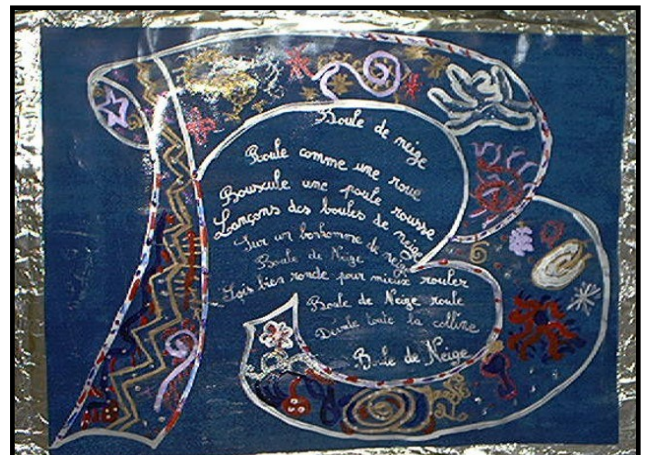 Boule de neige
Roule comme une roue
Bouscule une poule rousse
Lançons des boules de neige
Sur un bonhomme de neige
Boule de Neige
Sois bien ronde pour mieux rouler
Boule de Neige roule
Dévale toute la colline
Boule de Neige